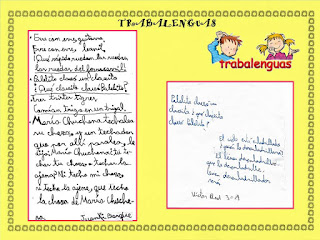 TRABALENGUAS
Erre con erre, guitarra,
Erre con erre, barril
¡Qué rápido ruedan las ruedas
las ruedas del ferrocarril!
Pablito clavó un clavito
¿Qué clavito clavó Pablito?
Tres tristes tigres,
Comían trigo en un trigal.
María Chuchena techaba
su choza, y un techador
que por allí pasaba, le
dijo: María Chuchena tu te-
chas tu choza o techas la
ajena? Ni techo mi choza
ni techo la ajena, que techo
la choza de María Chuche-
na.
trabalenguas
Pablito clavó un
clavito ¿qué clavito
clavó Pablito?
El cielo está
¿quién lo desenladrillará?
El
que lo
buen desenladrillador
será